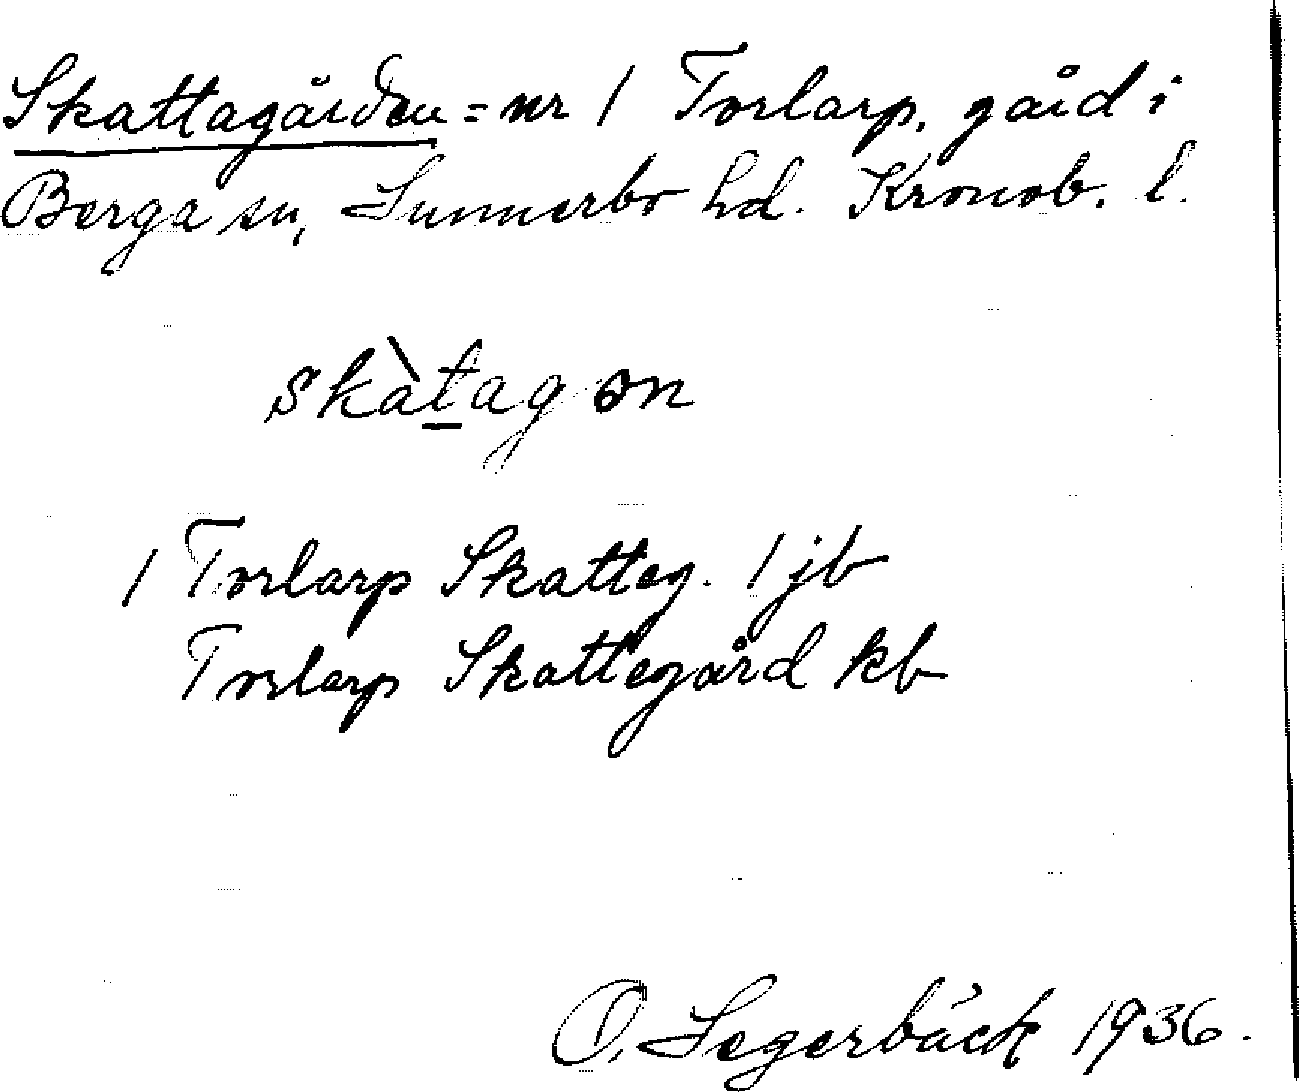 Skattagården = nr 1 Torlarp, gård i
Berga sn, Sunnerbo hd. Kronob. l.
skàtagən
1 Torlarp Skatteg. 1 jb
Torlarp Skattegård kb
O. Segerbäck 1936.